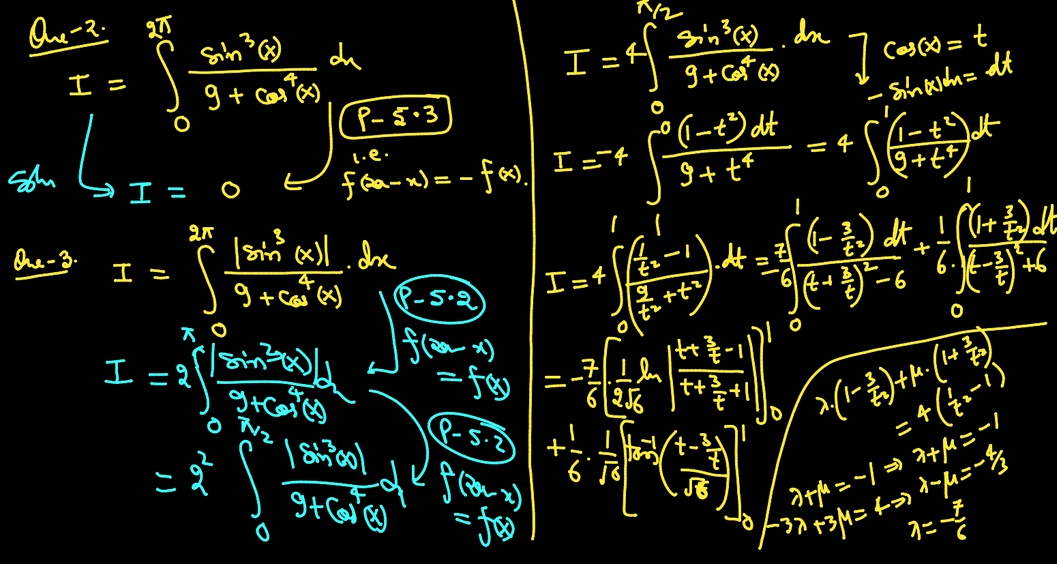 Que-2.
I = ∫_0^{2π} sin³(x) / (9 + cos⁴(x)) dx
P-5.3
i.e.
f(2a-x) = - f(x).
Soln I = 0
Que-3. I = ∫_0^{2π} |sin³(x)| / (9 + cos⁴(x)) . dx
P-5.2
f(2a-x) = f(x)
I = 2 ∫_0^{π} |sin³(x)| / (9 + cos⁴(x)) dx
P-5.2
f(2a-x) = f(x)
= 2² ∫_0^{π/2} |sin³(x)| / (9 + cos⁴(x)) dx
I = 4 ∫_0^{π/2} sin³(x) / (9 + cos⁴(x)) . dx
cos(x) = t
- sin(x)dx = dt
I = -4 ∫^0 (1-t²) dt / (9 + t⁴) = 4 ∫_0^1 ((1-t²) / (9 + t⁴)) dt
I = 4 ∫_0^1 ((1/t² - 1) / (9/t² + t²)) . dt = -7/6 ∫_0^1 (1 - 3/t²) dt / ((t + 3/t)² - 6) + 1/6 ∫_0^1 (1 + 3/t²) dt / ((t - 3/t)² + 6)
= -7/6 [1/(2√6) ln |(t + 3/t - 1) / (t + 3/t + 1)|]_0^1
+ 1/6 . 1/√6 [tan⁻¹((t - 3/t) / √6)]_0^1
λ.(1 - 3/t²) + μ.(1 + 3/t²)
= 4 (1/t² - 1)
λ+μ = -1 ⇒ λ+μ = -1
-3λ+3μ = 4 ⇒ λ-μ = -4/3
λ = -7/6